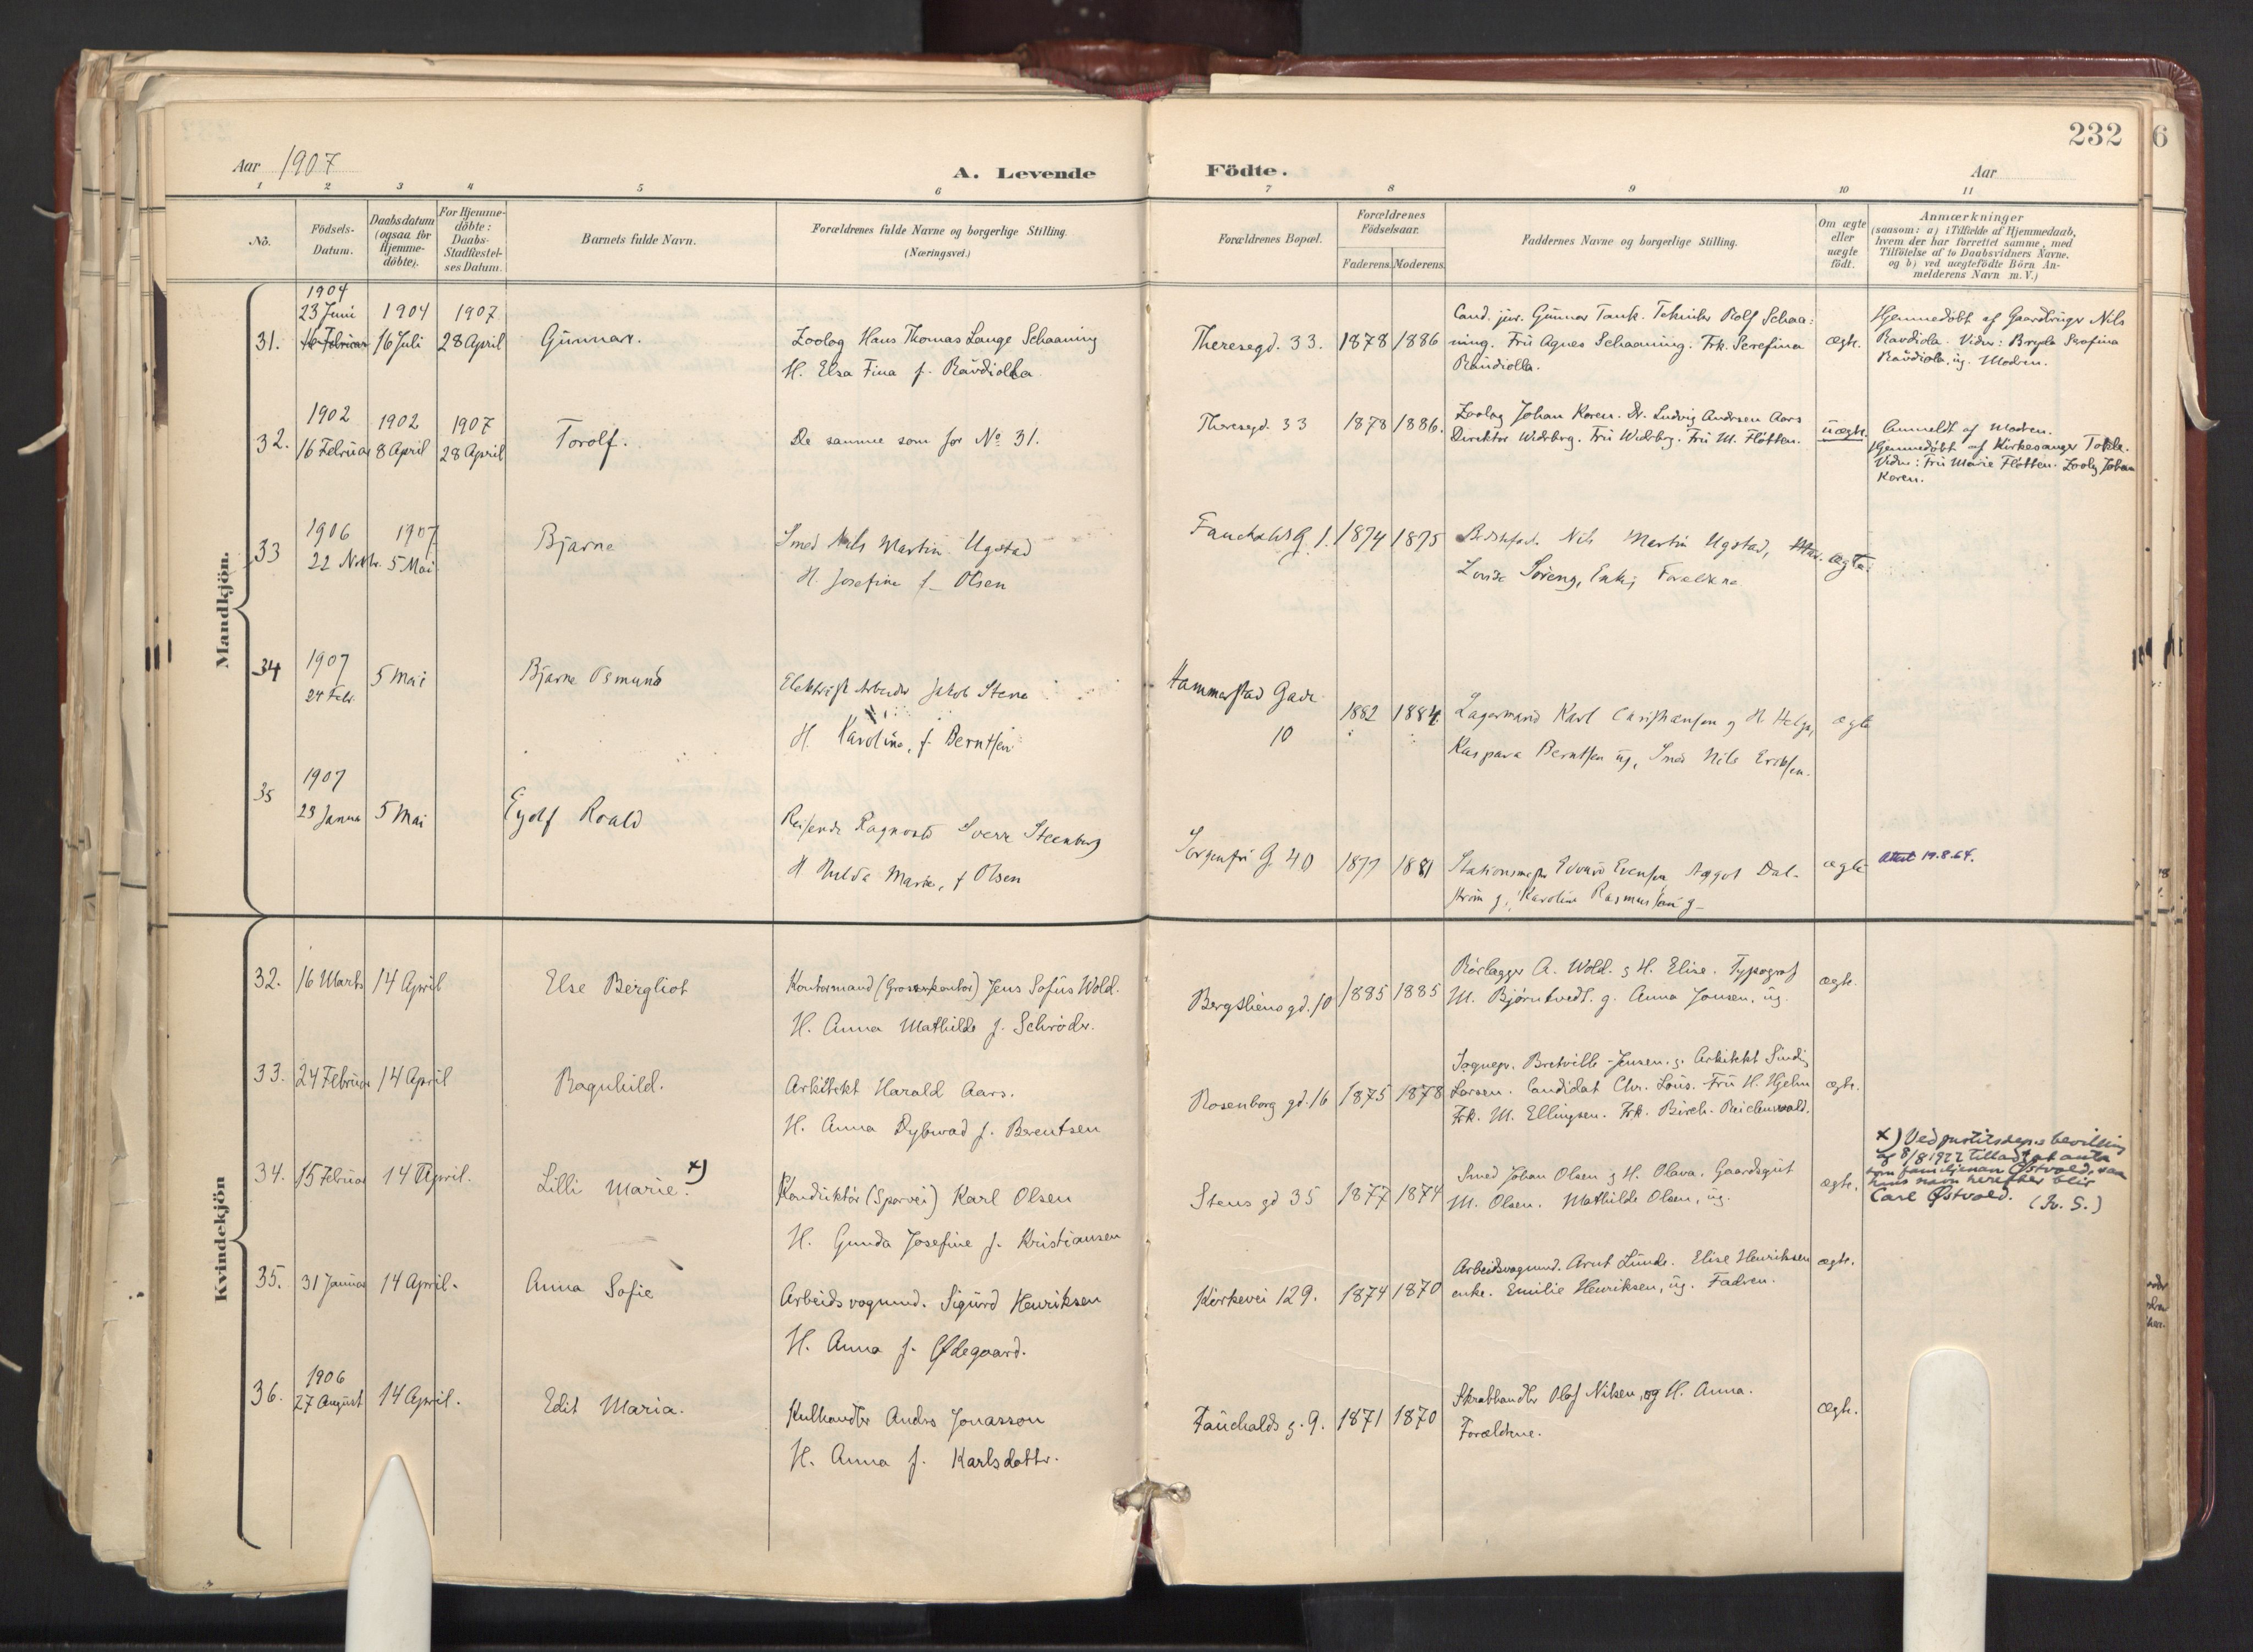 232
6
Aar 1907
A. Levende Födte.
Aar
1 2 3 4 5 6 7 8 9 10 11
No.
Födsels-Datum.
Daabsdatum (ogsaa for Hjemme-döbte).
For Hjemme-döbte: Daabs-Stadfæstel-ses Datum.
Barnets fulde Navn.
Forældrenes fulde Navne og borgerlige Stilling.
(Næringsvei.)
Forældrenes Bopæl.
Forældrenes Födselsaar.
Faderens. Moderens.
Faddernes Navne og borgerlige Stilling.
Om ægte eller uægte födt.
Anmærkninger
(saasom: a) i Tilfælde af Hjemmedaab,
hvem der har forrettet samme, med
Tilföielse af to Daabsvidners Navne.
og b) ved uægtefödte Börn An-
melderens Navn m. V.)
Mandkjön.
31.
1904
23 Juni
16 Februar
1904
16 Juli
1907
28 April
Gunnar.
Zoolog Hans Thomas Lange Schaaning
H. Elsa Fina f. Raudiolla
Theresegd. 33.
1878 1886
Cand. jur. Gunnar Tank. Tekniker Rolf Schaa:
ning. Fru Agnes Schaaning. Frk. Serefina
Raudiolla.
ægte.
Hjemmedøbt af Gaardbruger Nils
Raudiola. Vidner: Serafina
Raudiola, ug. Modren.
32.
1902
16 Februar
1902
8 April
1907
28 April
Torolf.
De samme som for No 31.
Theresegd. 33
1878 1886.
Zoolog Johan Koren. Dr. Ludvig Andresen Aars
Direktør Widerberg. Fru Widerberg. Fru M. Fløtten.
uægte.
Anmeldt af Modren.
Hjemmedøbt af Kirkesanger
Vidner: Fru Marie Fløtten. Zoolog Johan
Koren.
33
1906
22 Novbr.
1907
5 Mai
Bjarne
Smed Nils Martin Ugstad
H. Josefine f. Olsen
Fauchalds G. 1.
1874 1875
Nils Martin Ugstad,
Lovise Søreng, Enke, Forældrene
ægte.
34
1907
24 Febr.
5 Mai
Bjarne Osmund
Elektrisk Arbeider Jakob Stene
H. Karoline, f. Berntsen
Hammerstad Gade
10
1882 1884
Lagermand Karl Christiansen og H. Helga,
Kaspara Berntsen ug, Smed Nils Eriksen.
ægte
35
1907
23 Januar
5 Mai
Eyolf Roald
Reisende Ragnvald Sverre Steenberg
H Hulda Marie, f Olsen
Sorgenfri G. 40
1877 1881
Stationsmester Edvard Evensen Aagot Dal-
strøm g, Karoline Rasmussen g-
ægte
Attest 19.8.64.
Kvindekjön
32.
16 Marts
14 April
Else Bergliot
Kontormand (Grossererkontor) Jens Sofus Wold.
H. Anna Mathilde f. Schrøder.
Bergsliens gd. 10
1885 1885
Rørlægger A. Wold. og H. Elise. Typograf
M. Bjørntvedt. g. Anna Jonsen, ug.
ægte.
33.
24 Februar
14 April
Ragnhild.
Arkitekt Harald Aars.
H. Anna Dybwad f. Berentsen
Rosenborg gd. 16
1875 1878
Sognepr. Bretville-Jensen. g. Arkitekt Sinding
Larsen. Candidat Chr. Lous. Fru H. Hjelm
Frk. M. Ellingsen. Frk. Birch-Reichenwald.
ægte.
34.
15 Februar
14 April.
Lilli Marie. x)
Konduktør (Sporvei) Karl Olsen
H. Gunda Josefine f. Kristiansen
Stens gd 35
1877 1874
Smed Johan Olsen og H. Olava. Gaardsgut
M. Olsen. Mathilde Olsen, ug.
ægte.
x) Ved justitsdep.s bevilling
af 8/8 1922 tilladt at anta
som familjenavn Østvold, saa
hans navn herefter blir
Carl Østvold. (Kv. S.)
35.
31 Januar
14 April.
Anna Sofie
Arbeidsvognmd. Sigurd Henriksen
H. Anna f. Ødegaard.
Kirkevei 129.
1874 1870
Arbeidsvognmd. Arnt Lunde. Elise Henriksen
enke. Emilie Henriksen, ug. Fadren.
ægte.
36.
1906
27 August
14 April.
Edit Maria.
Kulhandler Anders Jonasson
H. Anna f. Karlsdotter.
Fauchalds g. 9.
1871 1870
Skrabhandler Olof Nilsen, og H. Anna.
Forældrene.
ægte.